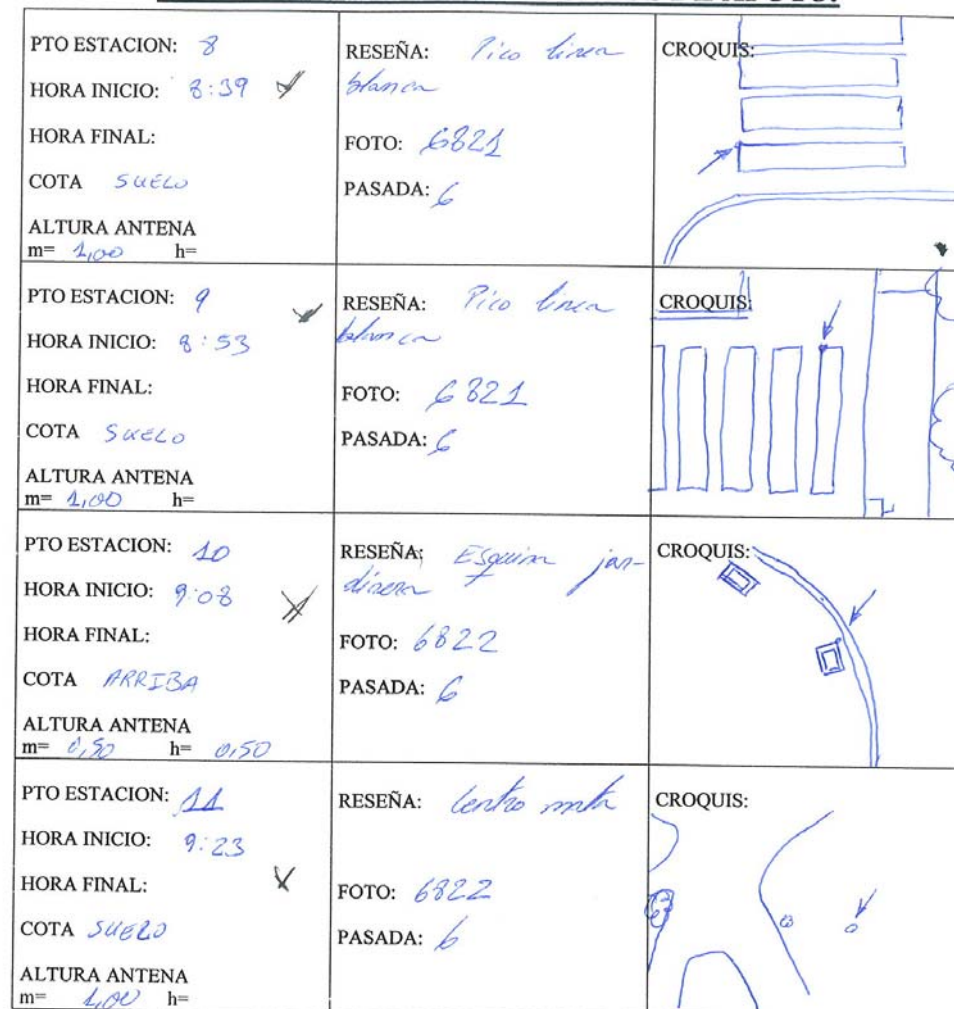 PTO ESTACION: 8
HORA INICIO: 8:39
HORA FINAL:
COTA SUELO
ALTURA ANTENA
m= 1,00 h=
RESEÑA: Pico linea
blanca
FOTO: 6821
PASADA: 6
CROQUIS:
PTO ESTACION: 9
HORA INICIO: 8:53
HORA FINAL:
COTA SUELO
ALTURA ANTENA
m= 1,00 h=
RESEÑA: Pico linea
blanca
FOTO: 6821
PASADA: 6
CROQUIS:
PTO ESTACION: 10
HORA INICIO: 9:08
HORA FINAL:
COTA ARRIBA
ALTURA ANTENA
m= 0,50 h= 0,50
RESEÑA: Esquina jar-
dinera
FOTO: 6822
PASADA: 6
CROQUIS:
PTO ESTACION: 11
HORA INICIO: 9:23
HORA FINAL:
COTA SUELO
ALTURA ANTENA
m= 1,00 h=
RESEÑA: Centro mata
FOTO: 6822
PASADA: 6
CROQUIS: